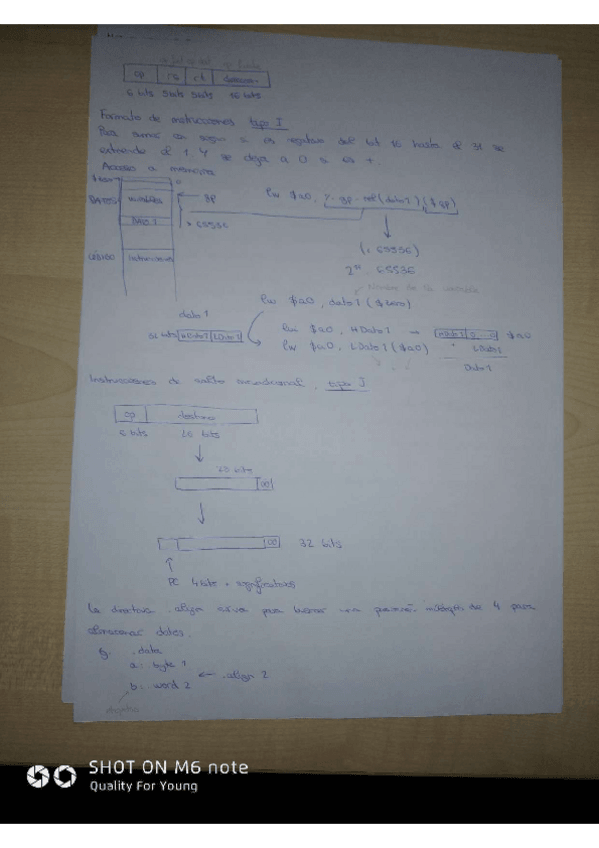 op rs rt
6 bits 5bits 5bits 16 bits
Formato de instrucciones tipo I
Para sumar con signo si es negativo del bit 16 hasta el 31 se
extiende el 1 y se deja a 0 si es +.
Acceso a memoria
DATOS variables gp
lw $a0, %gp-rel(dato1)($gp)
DATO 1 + 65536
(. 65536)
CÓDIGO instrucciones
2¹⁶ 65536
Nombre de la variable
lw $a0, dato1($zero)
dato1
32 bits HDato1 LDato1
lui $a0, HDato1 → HDato1 0 0 $a0
lw $a0, LDato1($a0)
LDato1
Dato1
Instrucciones de salto incondicional, tipo J
op destino
6 bits 26 bits
28 bits
00
00 32 bits
PC 4 bits + significativos
La directiva .align sirve para buscar una posición múltiplo de 4 para
almacenar datos.
Ej. .data
a: byte 1
← .align 2
b: word 2
etiqueta
SHOT ON M6 note
Quality For Young